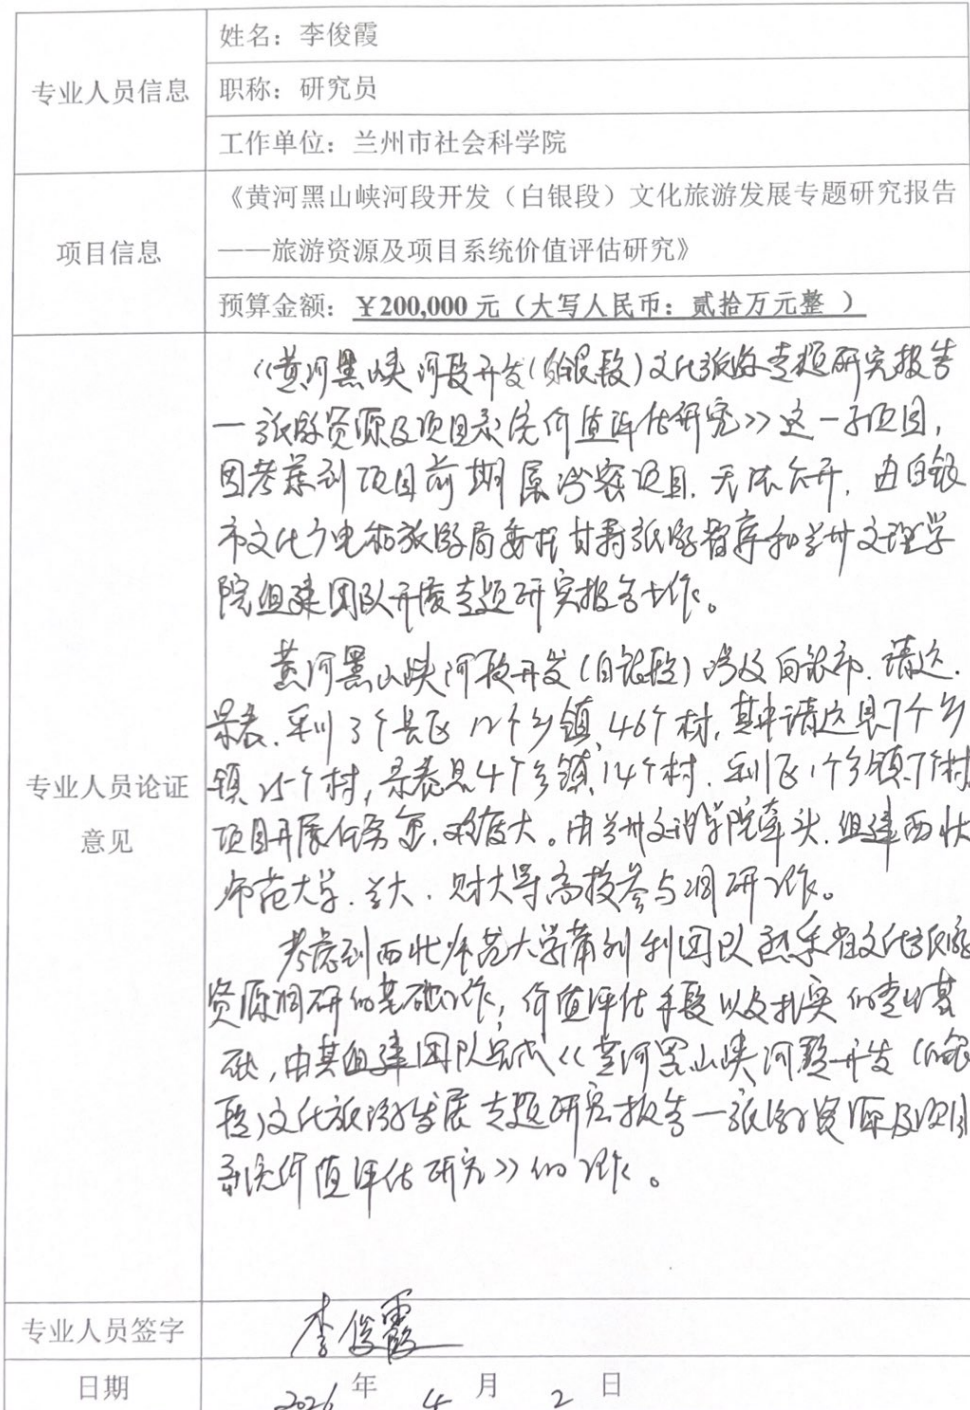 专业人员信息
姓名：李俊霞
职称：研究员
工作单位：兰州市社会科学院
项目信息
《黄河黑山峡河段开发（白银段）文化旅游发展专题研究报告
——旅游资源及项目系统价值评估研究》
预算金额：￥200,000 元（大写人民币：贰拾万元整 ）
专业人员论证
意见
《黄河黑山峡河段开发(白银段)文化旅游专题研究报告
—旅游资源及项目系统价值评估研究》这一子项目,
因考虑到项目前期属涉密项目,无法公开,由白银
市文化广电和旅游局委托甘肃旅游智库和兰州文理学
院组建团队开展专题研究报告工作。
黄河黑山峡河段开发(白银段)涉及白银市.靖远.
景泰.平川3个县区12个乡镇,46个村,其中靖远县7个乡
镇25个村,景泰县4个乡镇14个村.平川区1个乡镇7个村
项目开展任务重,难度大。由兰州文理学院牵头.组建西北
师范大学.兰大.财大等高校参与调研工作。
考虑到西北师范大学团队熟悉省文化旅游
资源调研的基础工作,价值评估手段以及扎实的专业基
础,由其组建团队完成《黄河黑山峡河段开发(白银
段)文化旅游发展专题研究报告—旅游资源及项目
系统价值评估研究》的工作。
专业人员签字
李俊霞
日期
2026 年 4 月 2 日